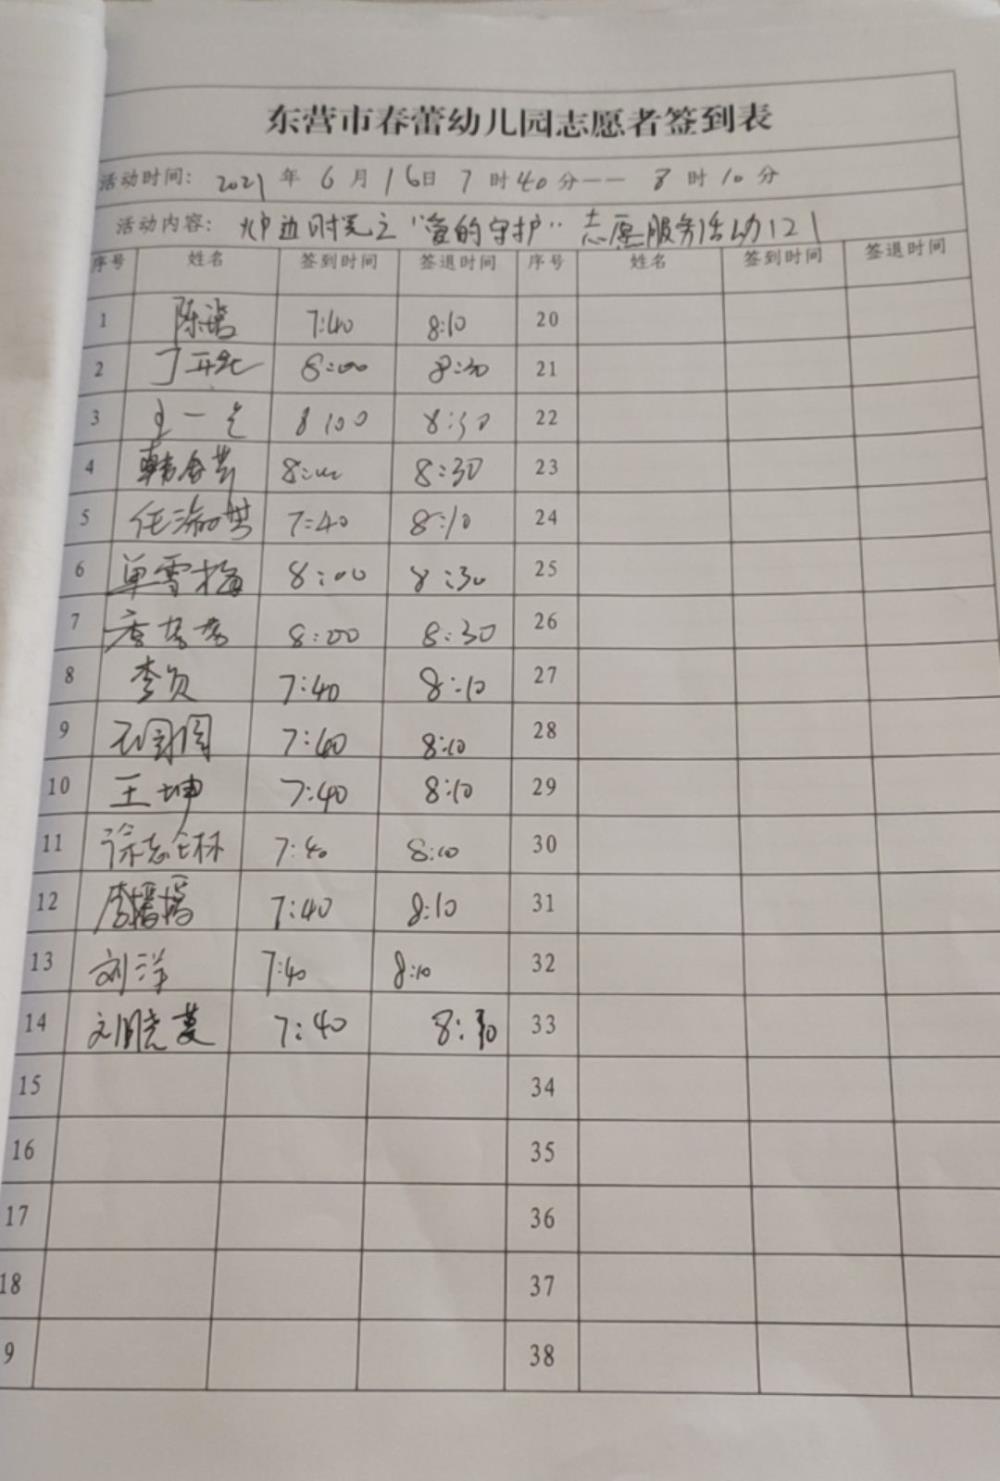 东营市春蕾幼儿园志愿者签到表
活动时间: 2021 年 6 月 16日 7 时 40 分—— 8 时 10 分
活动内容: 炉边时光之"爱的守护" 志愿服务活动121
序号 姓名 签到时间 签退时间 序号 姓名 签到时间 签退时间
1 陈 7:40 8:10 20
2 丁 8:00 8:30 21
3 王一 8:00 8:30 22
4 韩 8:00 8:30 23
5 任 7:40 8:10 24
6 单雪梅 8:00 8:30 25
7 8:00 8:30 26
8 李 7:40 8:10 27
9 石园园 7:40 8:10 28
10 王坤 7:40 8:10 29
11 徐志 7:40 8:10 30
12 李播播 7:40 8:10 31
13 刘洋 7:40 8:10 32
14 刘晓蔓 7:40 8:10 33
15 34
16 35
17 36
18 37
9 38